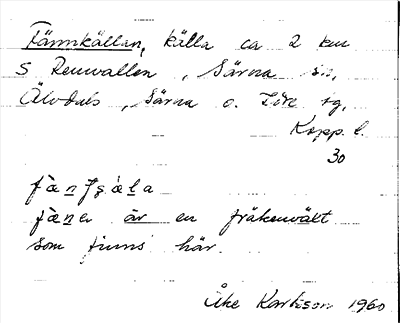 Fännkällan, källa ca 2 km
S Renvallen, Särna sn,
Älvdals, Särna o. Idre tg,
Kopp. l.
30
fànʃɕàla
fæ̀nen är en fräkenväxt
som finns här.
Åke Karlsson 1960